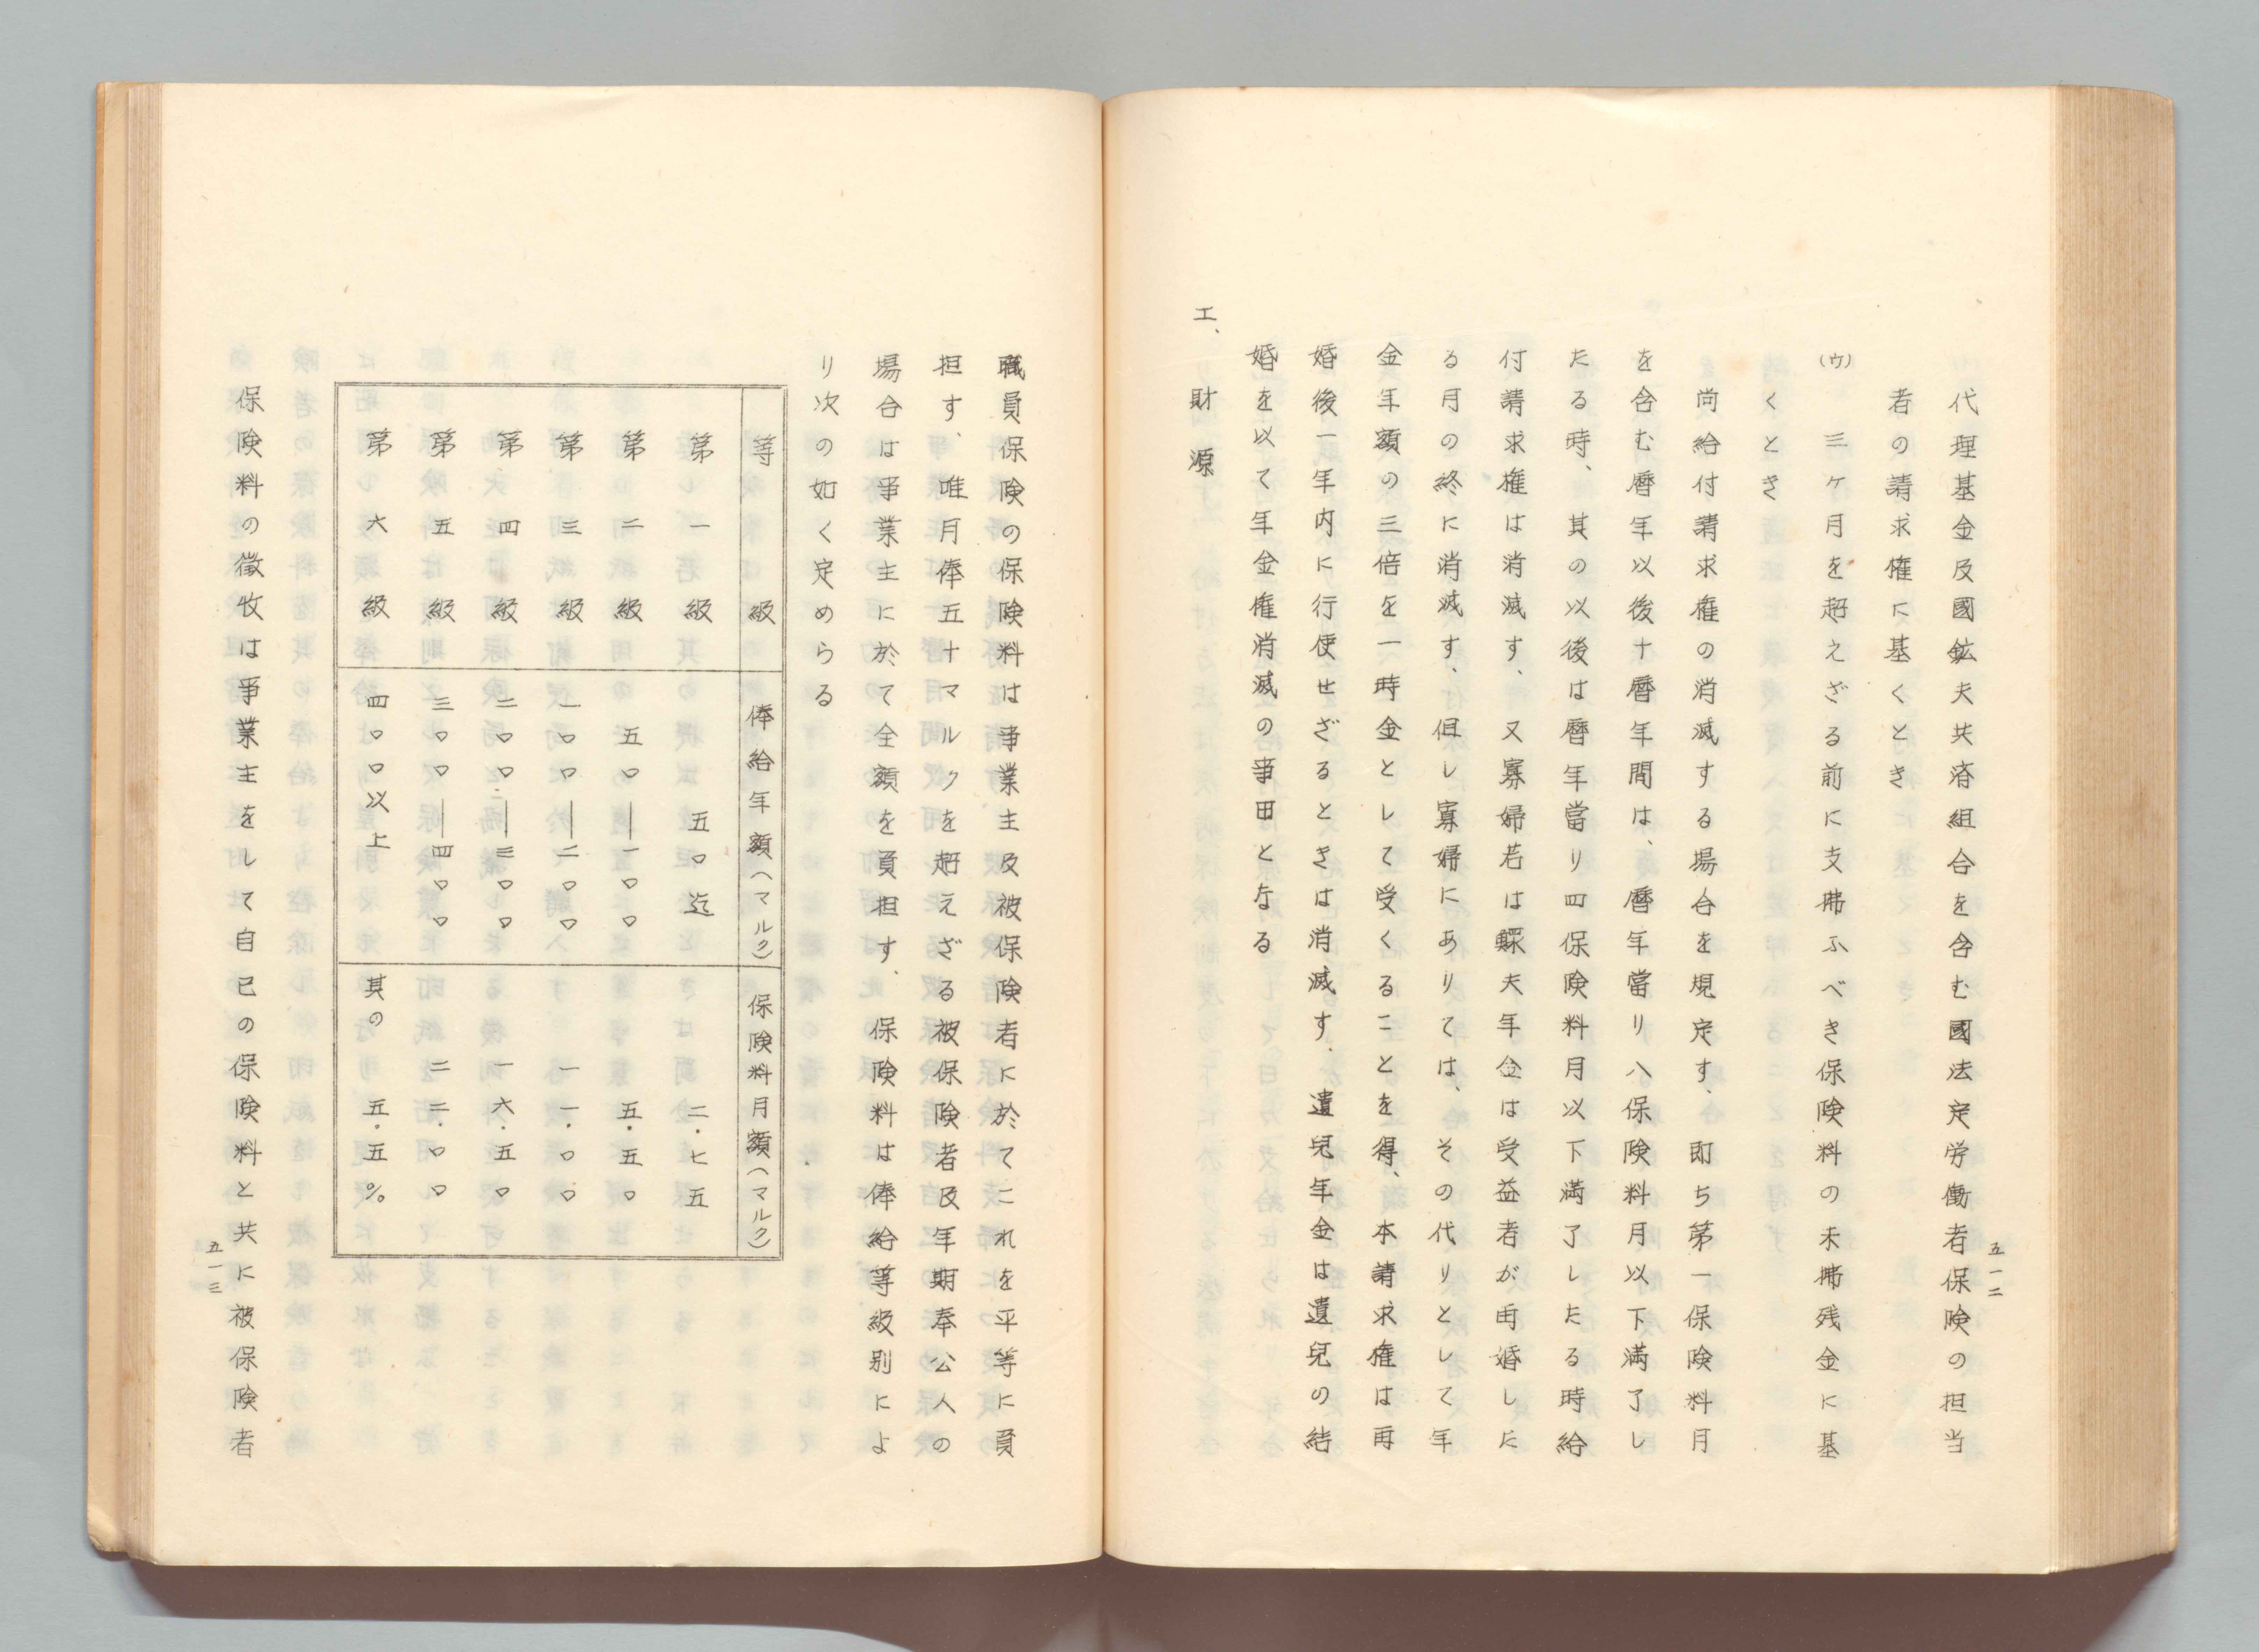 代理基金及國鉱夫共済組合を含む國法定労働者保険の担当
者の請求権に基くとき
(ウ) 三ヶ月を超えざる前に支拂ふべき保険料の未拂残金に基
くとき
尚給付請求権の消滅する場合を規定す、即ち第一保険料月
を含む暦年以後十暦年間は、暦年當り八保険料月以下満了し
たる時、其の以後は暦年當り四保険料月以下満了したる時給
付請求権は消滅す、又寡婦若は鰥夫年金は受益者が再婚した
る月の終に消滅す、但し寡婦にありては、その代りとして年
金年額の三倍を一時金として受くることを得、本請求権は再
婚後一年内に行使せざるときは消滅す、遺兒年金は遺兒の結
婚を以て年金権消滅の事由となる
エ、財源
五一二
職員保険の保険料は事業主及被保険者に於てこれを平等に負
担す、唯月俸五十マルクを超えざる被保険者及年期奉公人の
場合は事業主に於て全額を負担す、保険料は俸給等級別によ
り次の如く定めらる
等級 俸給年額(マルク) 保険料月額(マルク)
第一級 五〇迄 二・七五
第二級 五〇―一〇〇 五・五〇
第三級 一〇〇―二〇〇 一一・〇〇
第四級 二〇〇―三〇〇 一六・五〇
第五級 三〇〇―四〇〇 二二・〇〇
第六級 四〇〇以上 其の 五・五%
保険料の徴收は事業主をして自己の保険料と共に被保険者
五一三